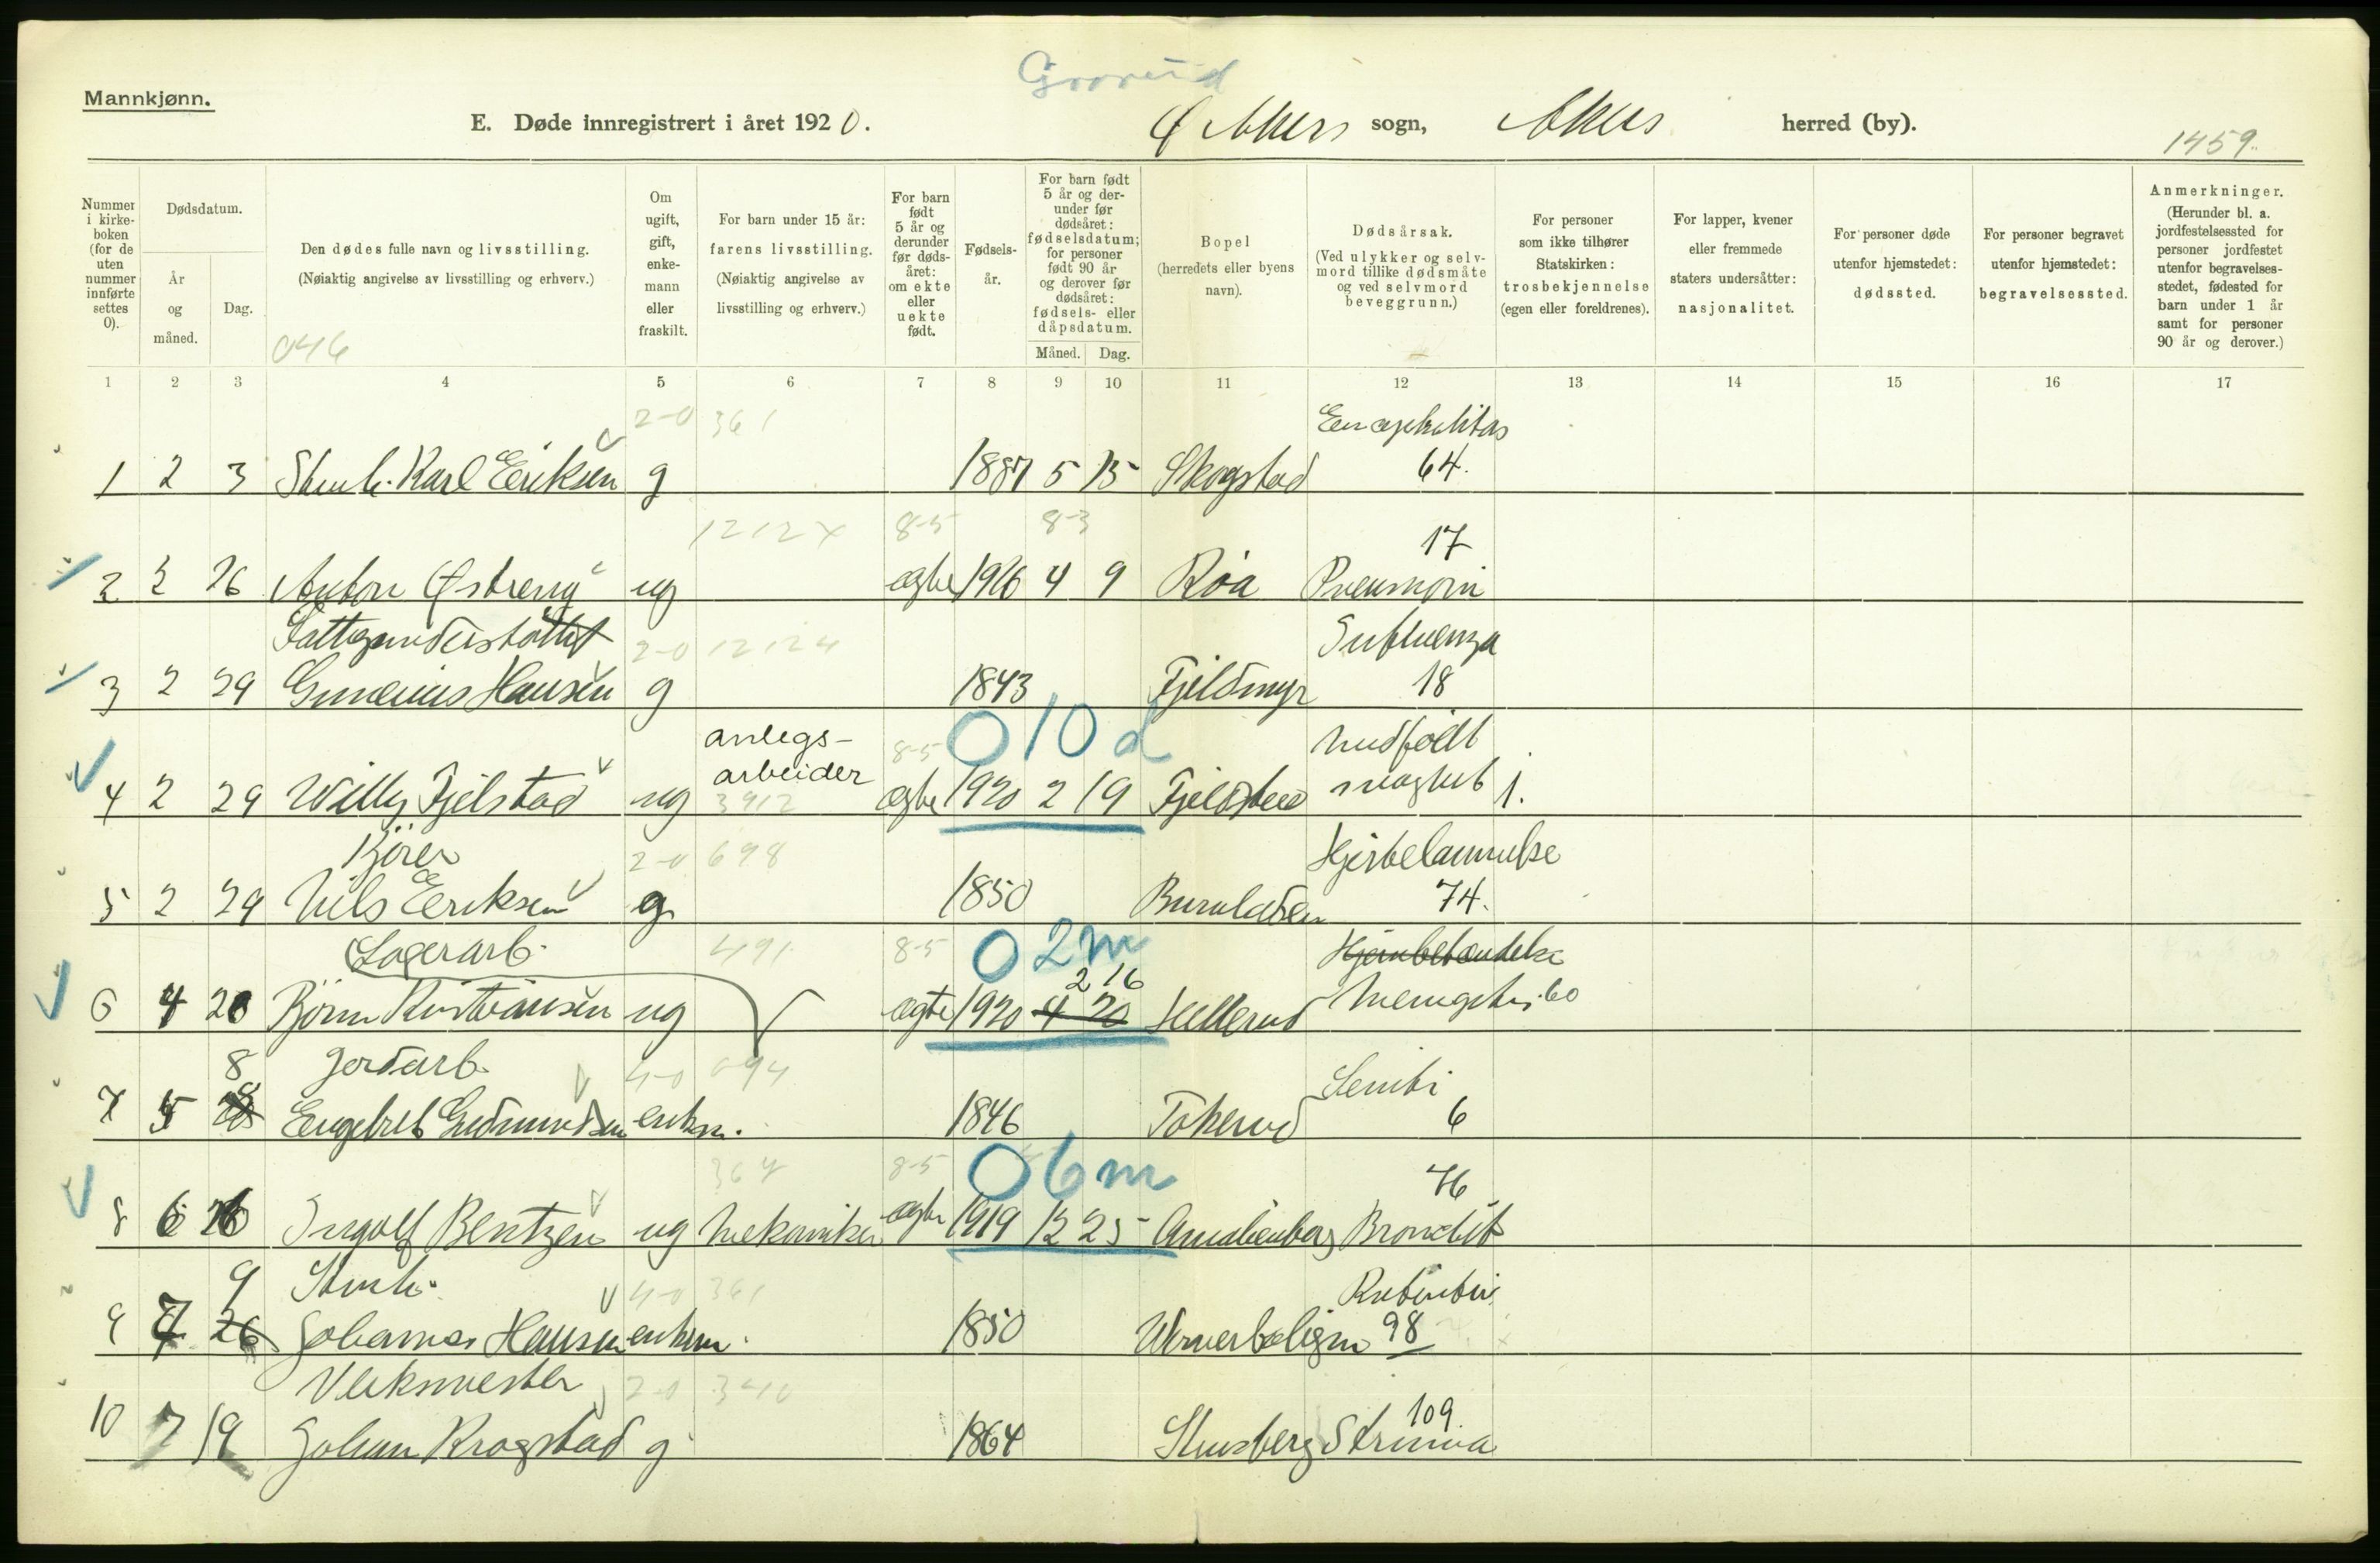 Grorud
Mannkjønn.
E. Døde innregistrert i året 1920.
Ø Akers sogn, Akers herred (by).
1459.
Nummer i kirkeboken (for de uten nummer innførte settes 0).
Dødsdatum.
År og måned.
Dag.
Den dødes fulle navn og livsstilling.
(Nøiaktig angivelse av livsstilling og erhverv.)
046
Om ugift, gift, enkemann eller fraskilt.
For barn under 15 år:
farens livsstilling.
(Nøiaktig angivelse av livsstilling og erhverv.)
For barn født 5 år og derunder før dødsåret: om ekte eller uekte født.
Fødselsår.
For barn født 5 år og derunder før dødsåret: fødselsdatum; for personer født 90 år og derover før dødsåret: fødsels- eller dåpsdatum.
Måned.
Dag.
Bopel
(herredets eller byens navn).
Dødsårsak.
(Ved ulykker og selvmord tillike dødsmåte og ved selvmord beveggrunn.)
For personer som ikke tilhører Statskirken: trosbekjennelse (egen eller foreldrenes).
For lapper, kvener eller fremmede staters undersåtter: nasjonalitet.
For personer døde utenfor hjemstedet: dødssted.
For personer begravet utenfor hjemstedet: begravelsessted.
Anmerkninger.
(Herunder bl. a. jordfestelsessted for personer jordfestet utenfor begravelsesstedet, fødested for barn under 1 år samt for personer 90 år og derover.)
1 2 3 4 5 6 7 8 9 10 11 12 13 14 15 16 17
2-0 361 Encephalitas
1 2 3 Stenh. Karl Eriksen g 1887 5 15 Skogstad 64.
1212 X 8-5 8-3 17
2 2 26 Anton Østreng ug ægte 1916 4 9 Røa Pneumoni
Fattigunderstøttet 2-0 Influenza
3 2 29 Gunerius Hansen g 1843 Fjeldmyr 18
anlegs- 8-5 010 d Medfødt
arbeider
4 2 29 Willy Fjelstad ug 3912 ægte 1920 2 19 svaghet 1.
Kjører 2-0 698 Hjertelammelse
5 2 29 Nils Eriksen g. 1850 74.
Lagerarb. 491 8-5 02m Hjernebetændelse
2 16
6 4 20 Bjørn Kristiansen ug ægte 1920 4 20 Hellerud 60
8 Jordarb. 4-0 094
7 5 Engebret Gudmundsen enkm. 1846 Tokerud 6
367 8-5 06m 76
8 6 Ingolf Bentzen ug Mekaniker ægte 1919 12 25 Amalienborg Bronchit
9 Stenh. 4-0 361
9 7 26 Johannes Hansen enkem. 1850 98
Verksmester 2-0 340
109.
10 7 19 Johan Krogstad g 1864 Stensberg Struma